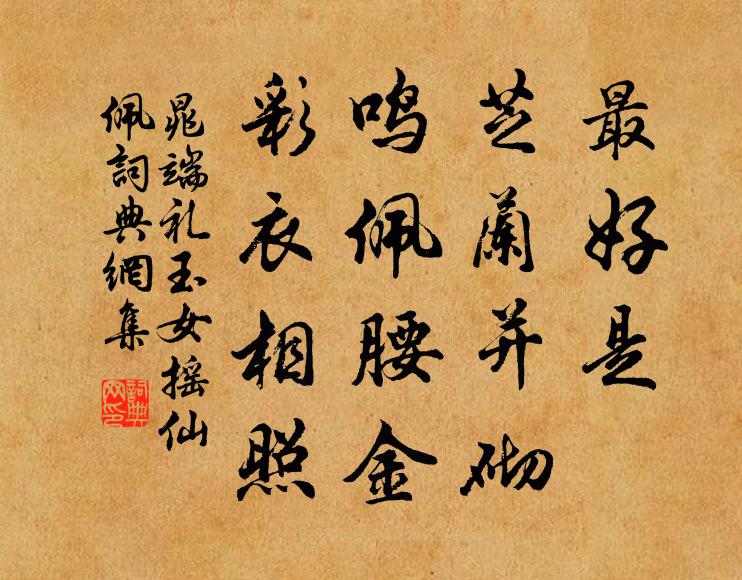 最好是
芝蘭并砌
鸣佩腰金
彩衣相照
晁端礼玉女摇仙
佩詞典網集
詞典
网印